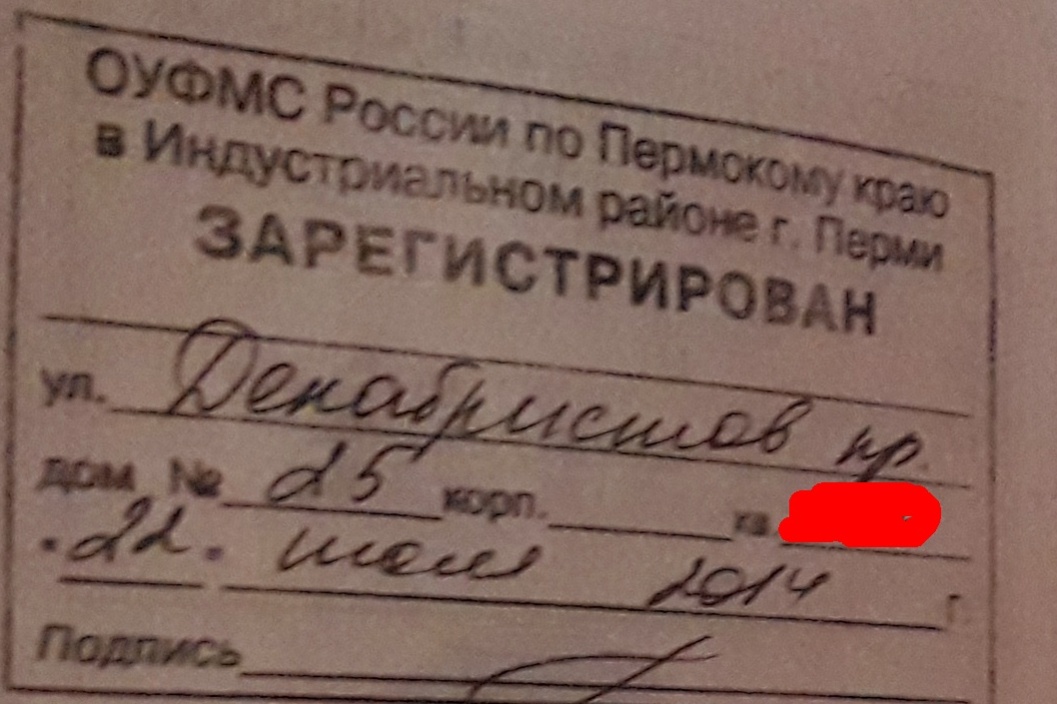 ОУФМС России по Пермскому краю
в Индустриальном районе г. Перми
ЗАРЕГИСТРИРОВАН
ул. Декабристов пр.
дом № 25 корп. кв.
"22" июля 2014 г.
Подпись